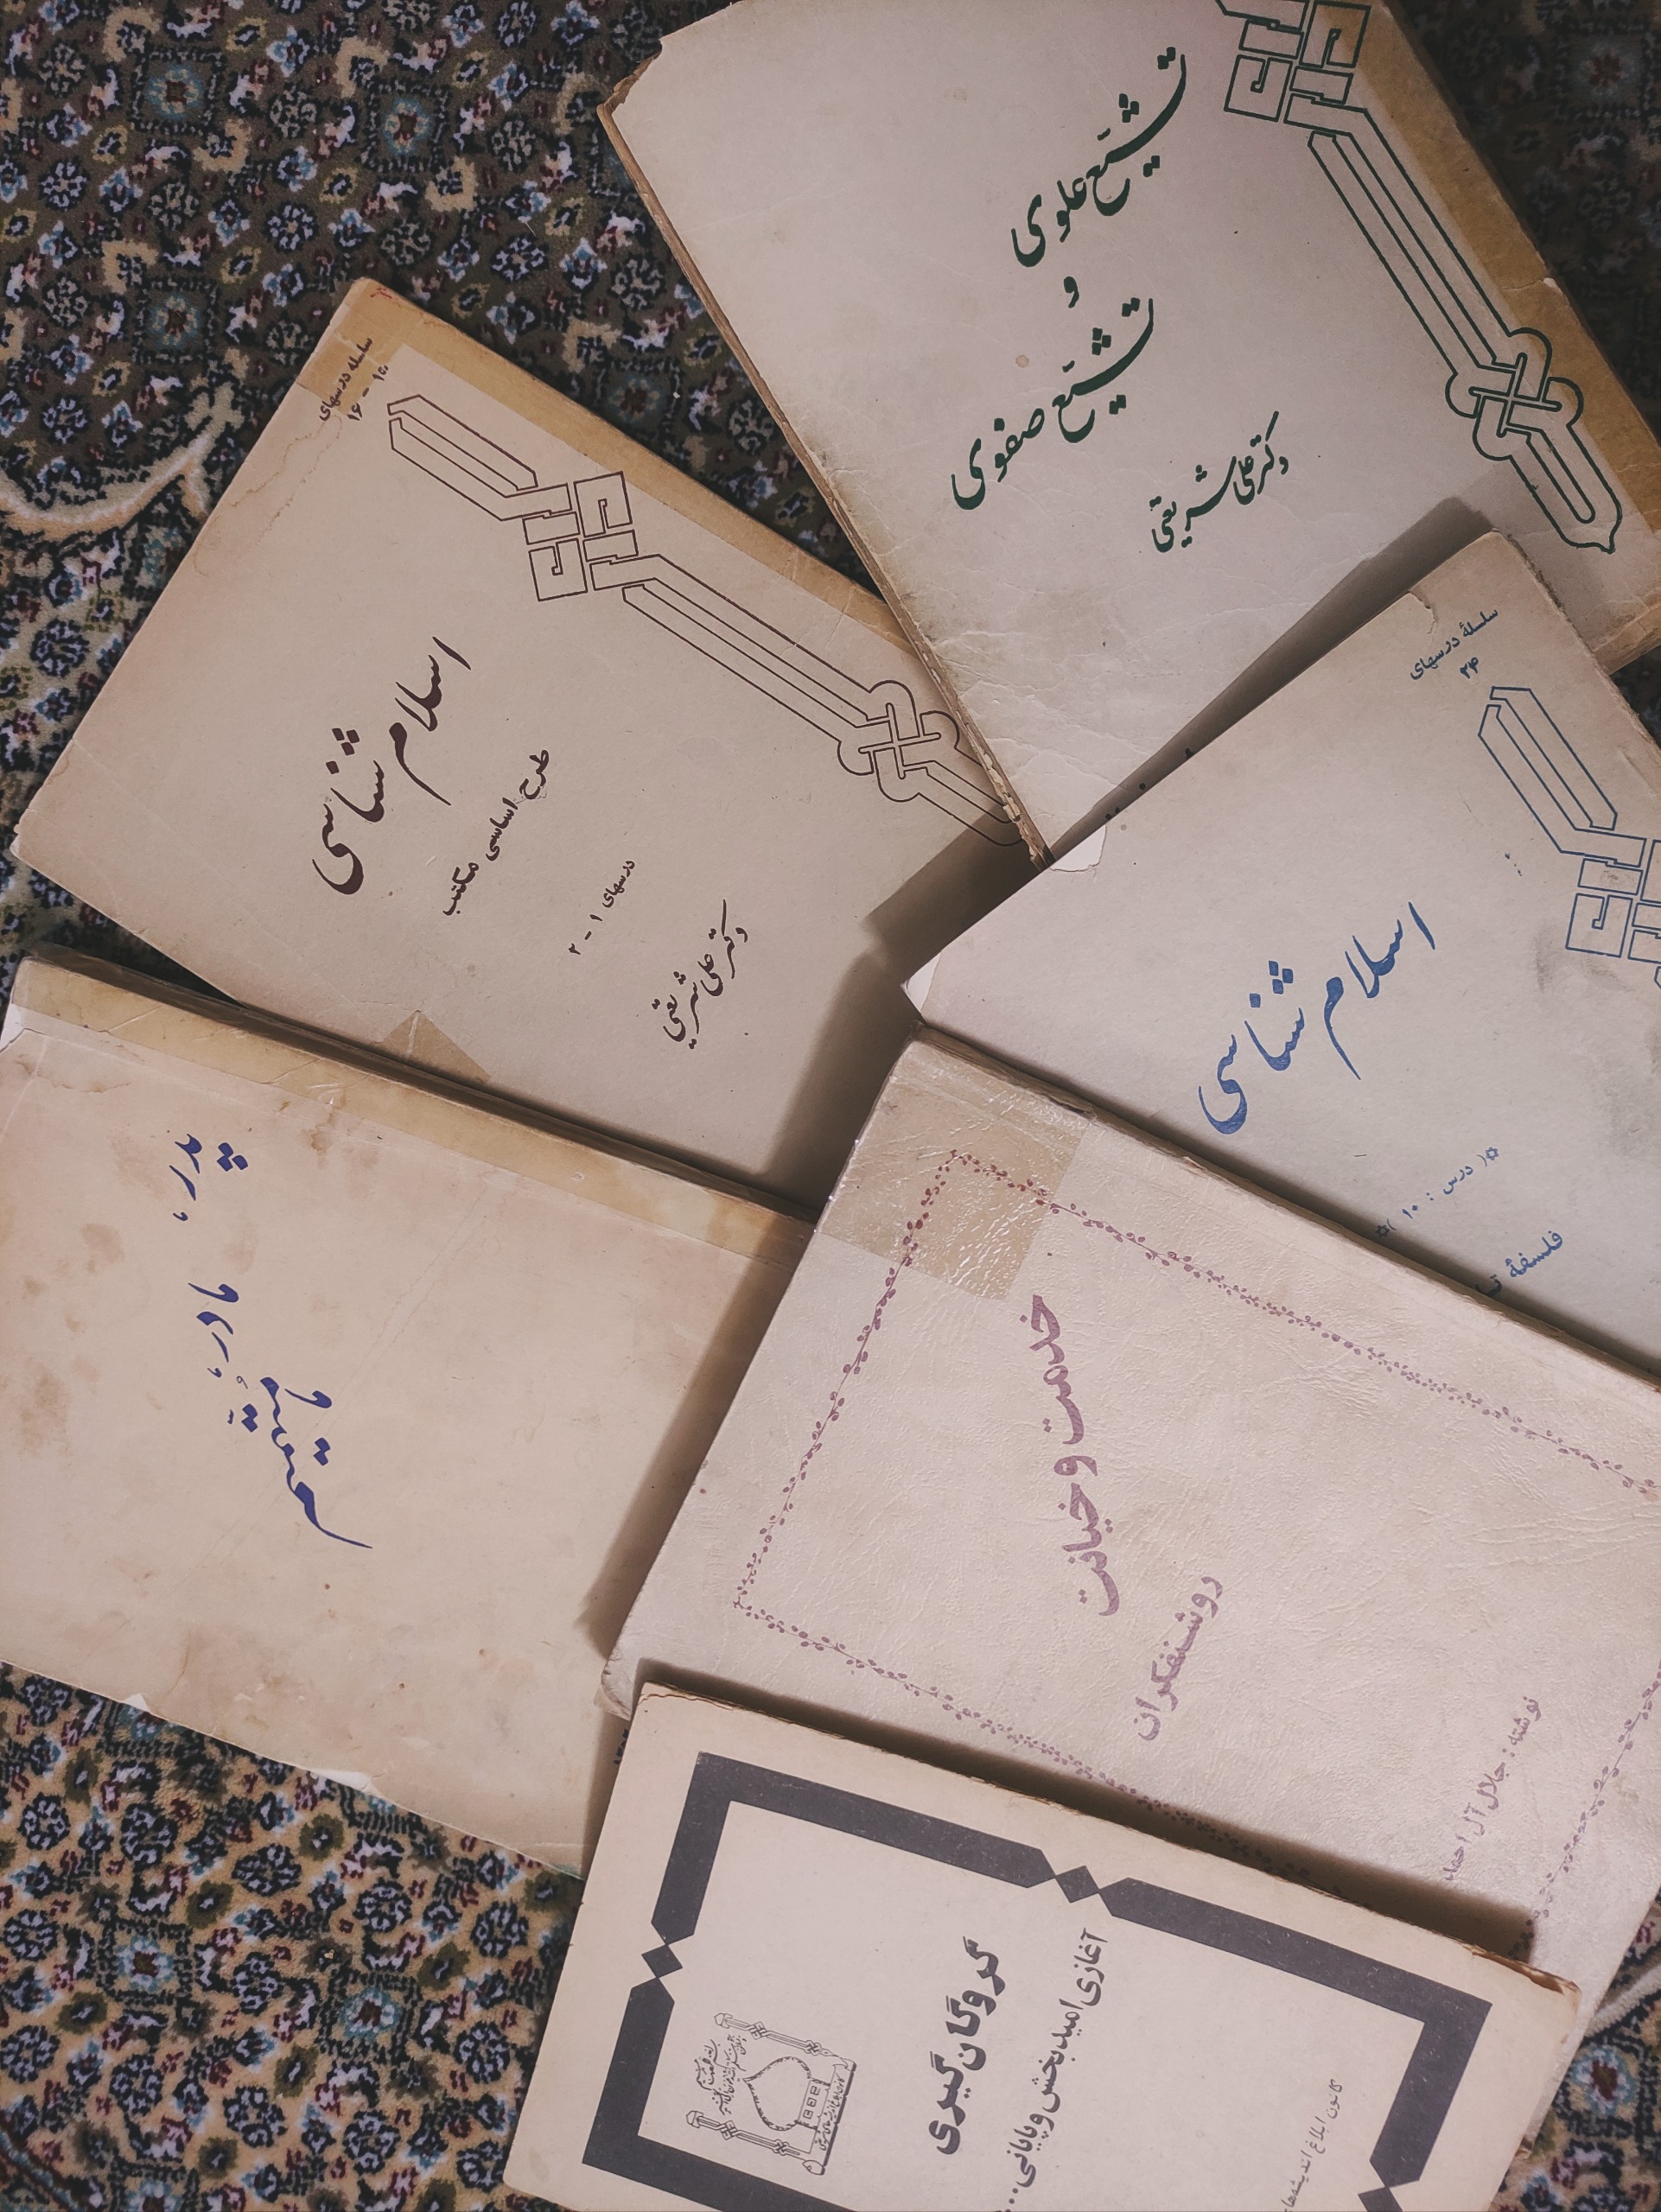 تشیّع علوی
و
تشیّع صفوی
دکتر علی شریعتی
سلسله درسهای
۱۶ - ۱۵
اسلام شناسی
طرح اساسی مکتب
درسهای ۱ - ۲
دکتر علی شریعتی
سلسلهٔ درسهای
۲۴
اسلام شناسی
( درس : ۱۰ )
فلسفهٔ
پدر،
مادر،
ما متّهمیم
خدمت و خیانت
روشنفکران
نوشته : جلال آل احمد
گروگان گیری
آغازی امیدبخش و پایانی...
کانون ابلاغ اندیشه‌های